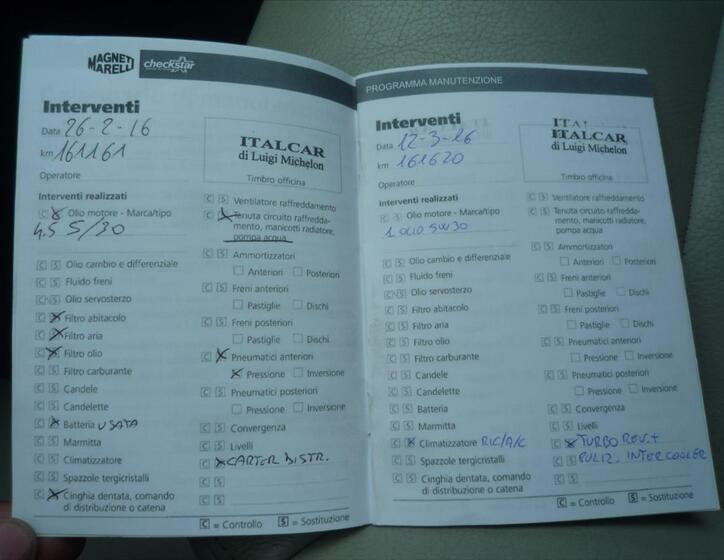 MAGNETI
MARELLI
checkstar
Interventi
Data 26-2-16
km 161161
Operatore
ITALCAR
di Luigi Michelon
Timbro officina
Interventi realizzati
C S Olio motore - Marca/tipo
4,5 5/30
C S Olio cambio e differenziale
C S Fluido freni
C S Olio servosterzo
C S Filtro abitacolo
C S Filtro aria
C S Filtro olio
C S Filtro carburante
C S Candele
C S Candelette
C S Batteria USATA
C S Marmitta
C S Climatizzatore
C S Spazzole tergicristalli
C S Cinghia dentata, comando
di distribuzione o catena
C S Ventilatore raffreddamento
C S Tenuta circuito raffredda-
mento, manicotti radiatore,
pompa acqua
C S Ammortizzatori
Anteriori Posteriori
C S Freni anteriori
Pastiglie Dischi
C S Freni posteriori
Pastiglie Dischi
C S Pneumatici anteriori
Pressione Inversione
C S Pneumatici posteriori
Pressione Inversione
C S Convergenza
C S Livelli
C S CARTER DISTR.
C S
C S
C = Controllo S = Sostituzione
PROGRAMMA MANUTENZIONE
Interventi
Data 12-3-16
km 161620
Operatore
ITALCAR
di Luigi Michelon
Timbro officina
Interventi realizzati
C S Olio motore - Marca/tipo
1 OLIO 5W30
C S Olio cambio e differenziale
C S Fluido freni
C S Olio servosterzo
C S Filtro abitacolo
C S Filtro aria
C S Filtro olio
C S Filtro carburante
C S Candele
C S Candelette
C S Batteria
C S Marmitta
C S Climatizzatore RIC/A/C
C S Spazzole tergicristalli
C S Cinghia dentata, comando
di distribuzione o catena
C S Ventilatore raffreddamento
C S Tenuta circuito raffredda-
mento, manicotti radiatore,
pompa acqua
C S Ammortizzatori
Anteriori Posteriori
C S Freni anteriori
Pastiglie Dischi
C S Freni posteriori
Pastiglie Dischi
C S Pneumatici anteriori
Pressione Inversione
C S Pneumatici posteriori
Pressione Inversione
C S Convergenza
C S Livelli
C S TURBO REV. +
C S PULIZ. INTERCOOLER
C S
C = Controllo S = Sostituzione